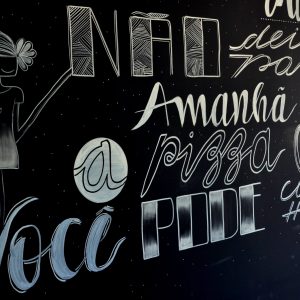 NÃO dei
pa
Amanhã
a pizza
Você PODE